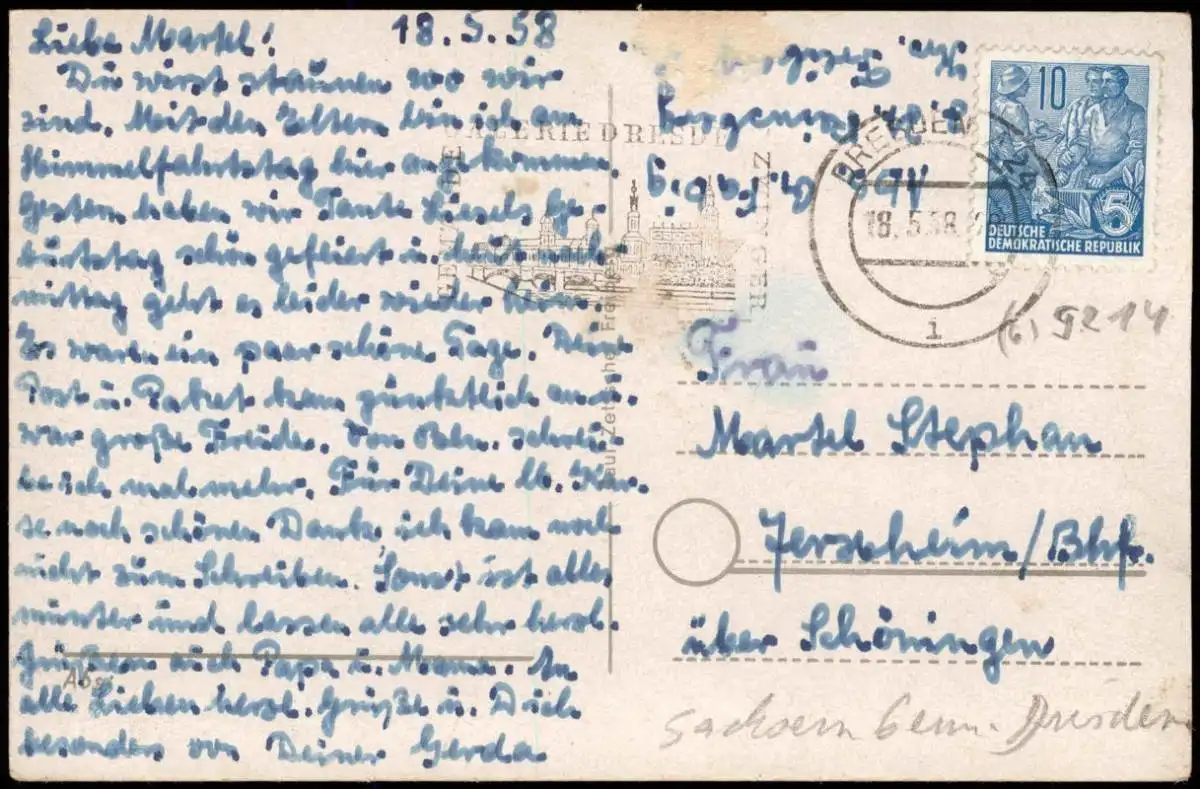 Liebe Martel! 18.5.58
Du wirst staunen wo wir
sind. Mit den Eltern bin ich am
Himmelfahrtstag hier angekommen.
Gestern haben wir Tante Liesels Ge-
burtstag schön gefeiert u. heut nach-
mittag geht es leider wieder heim.
Es waren ein paar schöne Tage. Deine
Post u. Paket kam pünktlich an u.
war große Freude. Von Bln. schrei-
be ich mal mehr. Für Deine lb. Kar-
te noch schönen Dank, ich kam noch
nicht zum Schreiben. Sonst ist alles
munter und lassen alle sehr herzl.
Grüßen auch Papa u. Mama. An
alle Lieben herzl. Grüße u. Dich
besonders von Deiner Gerda
Abs.
GEMÄLDE
GALERIE DRESDEN
ZWINGER
DRESDEN
18.5.58
i
10
5
DEUTSCHE
DEMOKRATISCHE REPUBLIK
(6) 9214
Frau
Martel Stephan
Jerxheim/Bhf.
über Schöningen
Sachsen Gem. Dresden